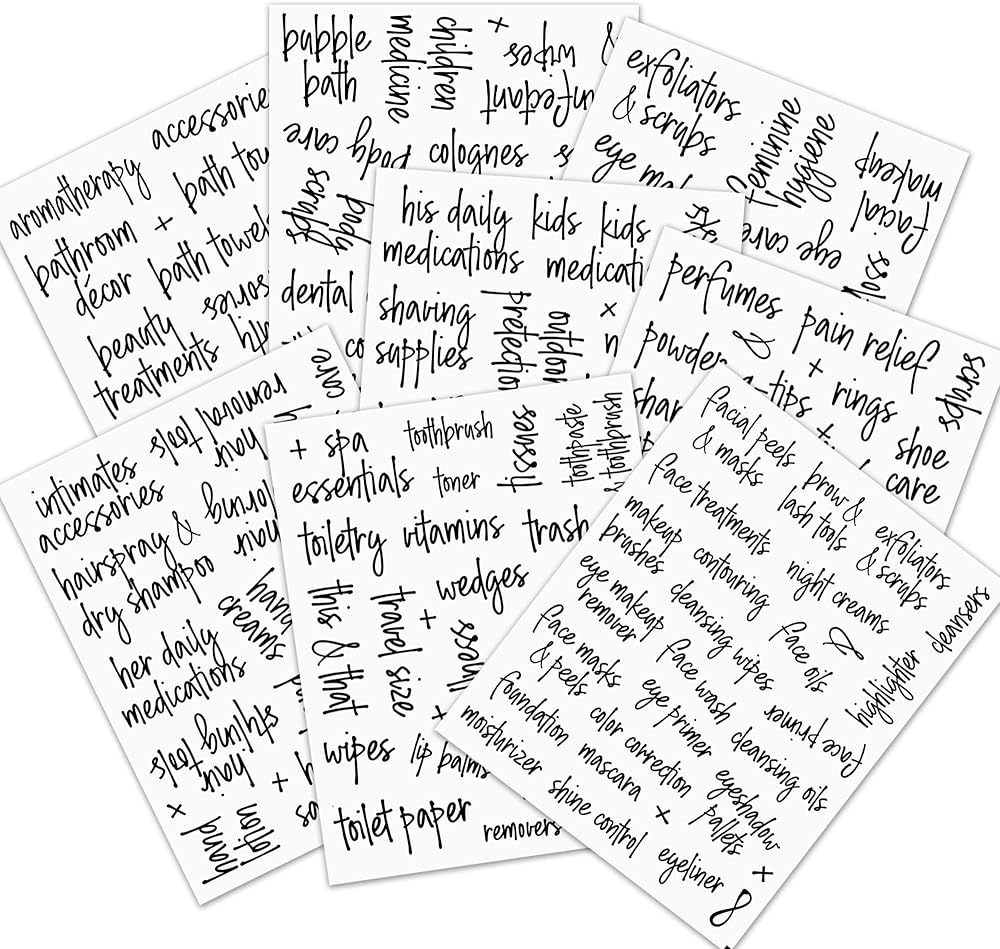 aromatherapy
accessorie
bathroom
décor
+
bath tow
bath towels
beauty
treatments
bubble
bath
children
medicine
+
wipes
body care
colognes
body
scrubs
dental
exfoliators
& scrubs
feminine
hygiene
facial
makeup
eye care
his daily
medications
kids
kids
medicati
shaving
supplies
outdoor
protection
×
perfumes
pain relief
scrubs
+ rings
shoe
care
intimates
accessories
hair removal tools
hairspray &
dry shampoo
hand
creams
her daily
medications
hair styling tools
+
×
hand
lotion
+ spa
essentials
toothbrush
toner
sensasily
toothpaste
& toothbrush
toiletry
vitamins
trash
wedges
this & that
travel size
+
×
wipes
lip balms
toilet paper
removers
facial peels
& masks
brow &
lash tools
exfoliators
& scrubs
face treatments
night creams
makeup
brushes
contouring
face oils
&
cleansers
highlighter
eye makeup
remover
cleansing wipes
face primer
face masks
& peels
face wash
cleansing oils
foundation
eye primer
moisturizer
color correction
eyeshadow
pallets
mascara
×
shine control
eyeliner
×
&